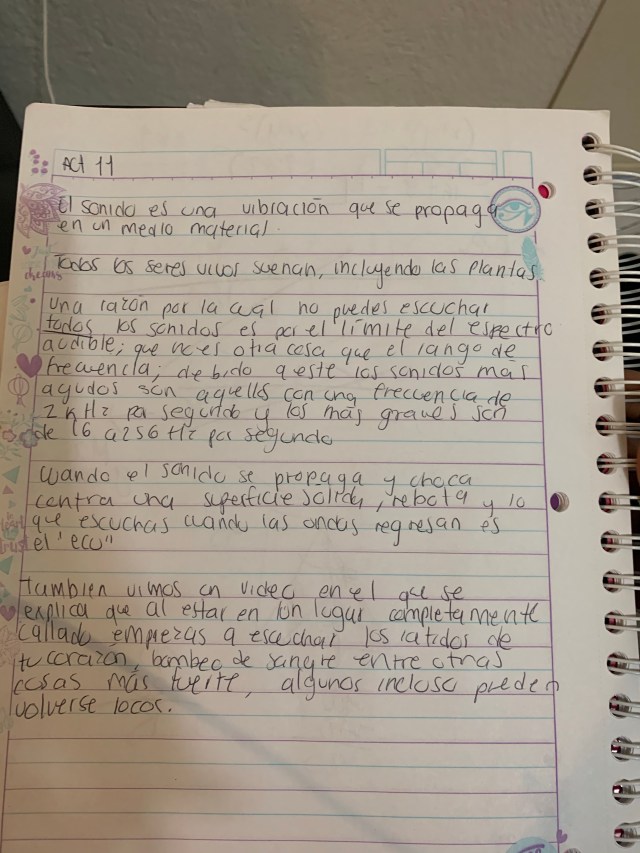 Act 11
El sonido es una vibración que se propaga
en un medio material.
Todos los seres vivos suenan, incluyendo las plantas
Una razón por la cual no puedes escuchar
todos los sonidos es por el límite del espectro
audible; que no es otra cosa que el rango de
frecuencia; debido a este los sonidos mas
agudos són aquellos con una frecuencia de
2 KHz por segundo y los más graves son
de 16 a 256 Hz por segundo
Cuando el sonido se propaga y choca
contra una superficie solida, rebota y lo
que escuchas cuando las ondas regresan es
el "eco"
También vimos un video en el que se
explica que al estar en un lugar completamente
callado empiezas a escuchar los latidos de
tu corazón, bombeo de sangre entre otras
cosas más fuerte, algunos incluso pueden
volverse locos.